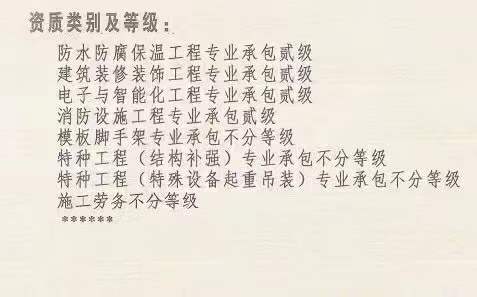 资质类别及等级：
防水防腐保温工程专业承包贰级
建筑装修装饰工程专业承包贰级
电子与智能化工程专业承包贰级
消防设施工程专业承包贰级
模板脚手架专业承包不分等级
特种工程（结构补强）专业承包不分等级
特种工程（特殊设备起重吊装）专业承包不分等级
施工劳务不分等级
******